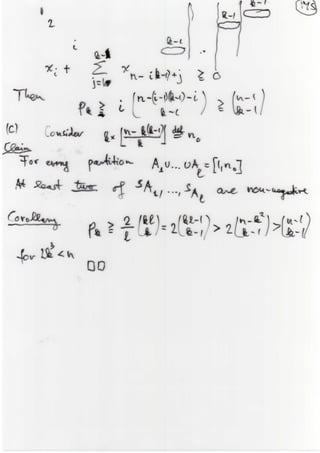 (145)
k-1
k-1
k-1
2
i
x_i + \sum_{j=1}^{k-1} x_{n-i(k-1)+j} ≧ 0
Then
p_k ≧ i \binom{n-(i-1)(k-1)-i}{k-1} ≧ \binom{n-1}{k-1}
(c) Consider k × [\frac{n-k(k-1)}{k}] \overset{def}{=} n_0
Claim
For every partition A_1 ∪ ... ∪ A_l = [1, n_0]
At least two of S_{A_1}, ..., S_{A_l} are non-negative
Corollary p_k ≧ \frac{2}{l} \binom{kl}{k} = 2 \binom{kl-1}{k-1} > 2 \binom{n-k^2}{k-1} > \binom{n-1}{k-1}
for 2k^3 < n □□